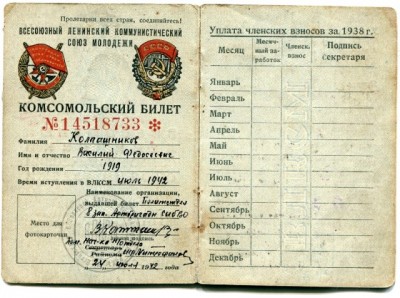 Пролетарии всех стран, соединяйтесь!
ВСЕСОЮЗНЫЙ ЛЕНИНСКИЙ КОММУНИСТИЧЕСКИЙ
СОЮЗ МОЛОДЕЖИ
КОМСОМОЛЬСКИЙ БИЛЕТ
№ 14518733 *
Фамилия Колпашников
Имя и отчество Василий Федосеевич
Год рождения 1919
Время вступления в ВЛКСМ июль 1942
Наименование организации,
выдавшей билет
8 зап.
Место для
фотокарточки
Секретарь
Райкома
24 июля 1942 года
Уплата членских взносов за 1938 г.
Месяц Месяч. заработок Членск. взнос Подпись секретаря
Январь
Февраль
Март
Апрель
Май
Июнь
Июль
Август
Сентябрь
Октябрь
Ноябрь
Декабрь